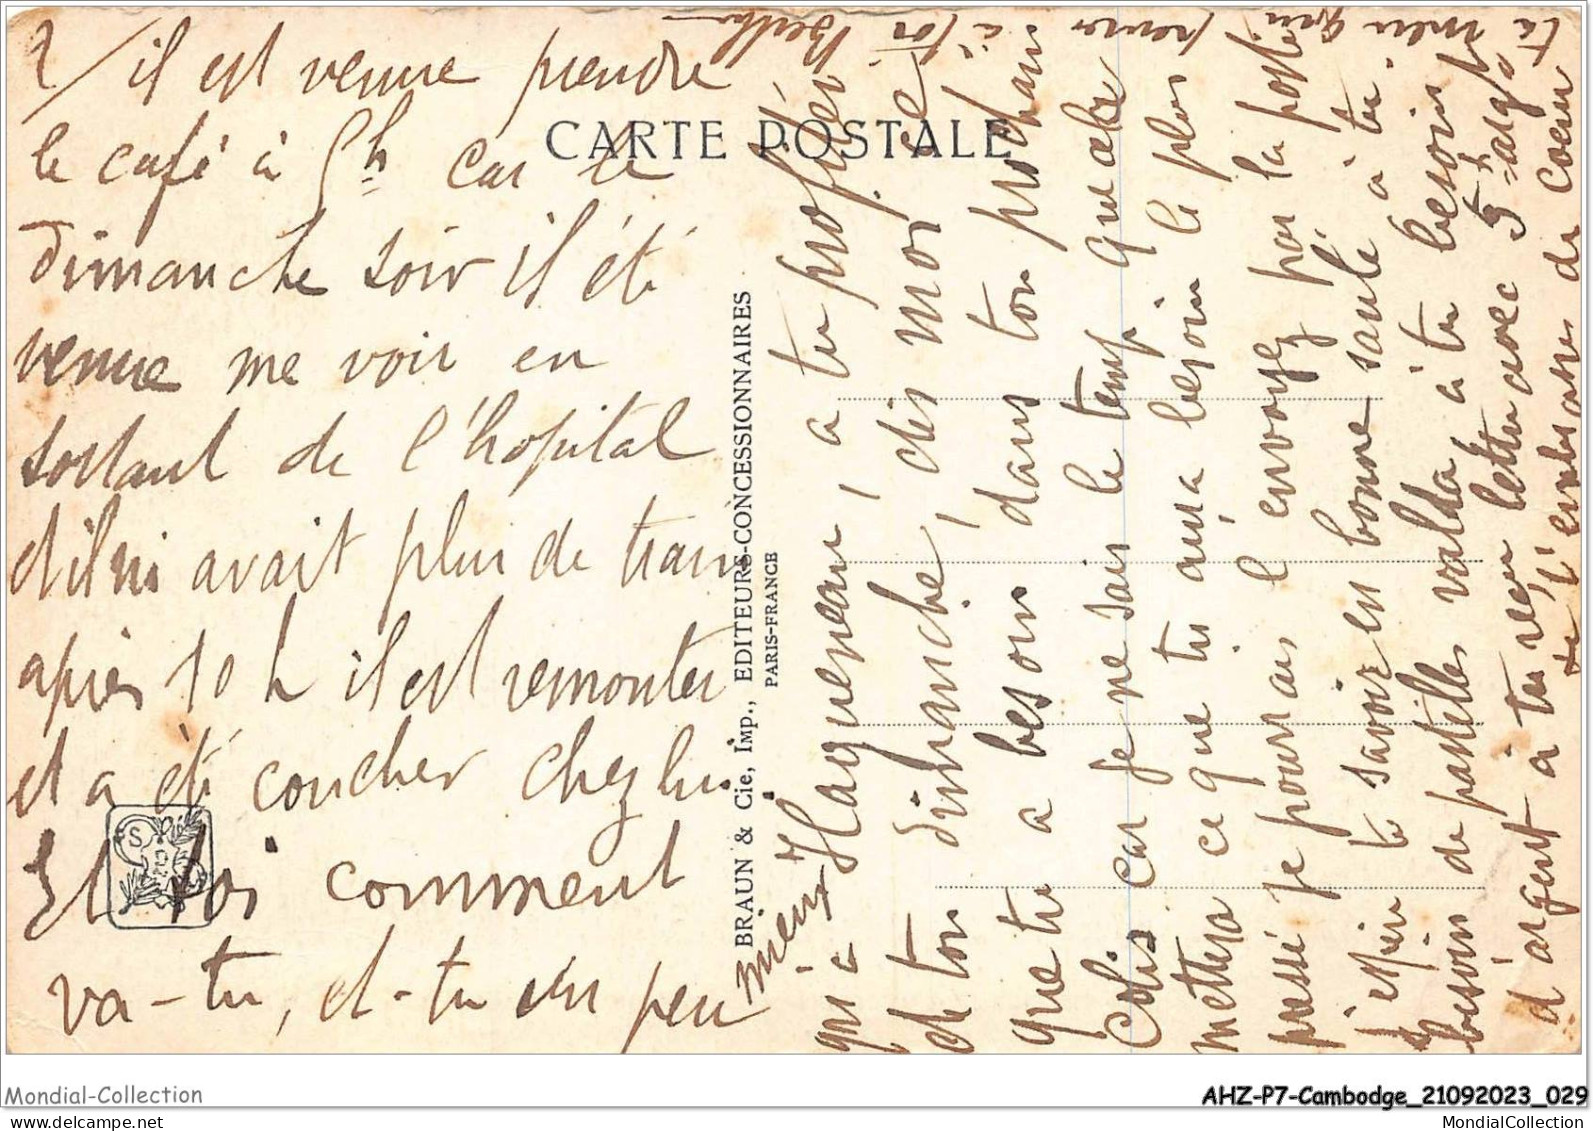 2/ il est venue prendre
le café à 5h car le
dimanche soir il été
venue me voir en
sortant de l'hopital
avait plus de tram
après 10 h il est remonter
et a été coucher chez lui
Et toi comment
va-tu, et-tu un peu
mieux
CARTE POSTALE
BRAUN & Cie, Imp., EDITEURS-CONCESSIONNAIRES
PARIS-FRANCE
Haguenau, a tu profiter
de ton dimanche, dis moi ce
que tu a besoin dans ton prochain
Colis car je ne sais le temp que
mettera ce que tu aura besoin le plus
pressé je pourrais l'envoyez par la poste
j'espère te savoir en bonne santé a tu
besoin de pastilles valda a tu besoin
d'argent a tu reçu lettre avec
te l'embrasse de coeur
à toi
Mondial-Collection
AHZ-P7-Cambodge_21092023_029
MondialCollection